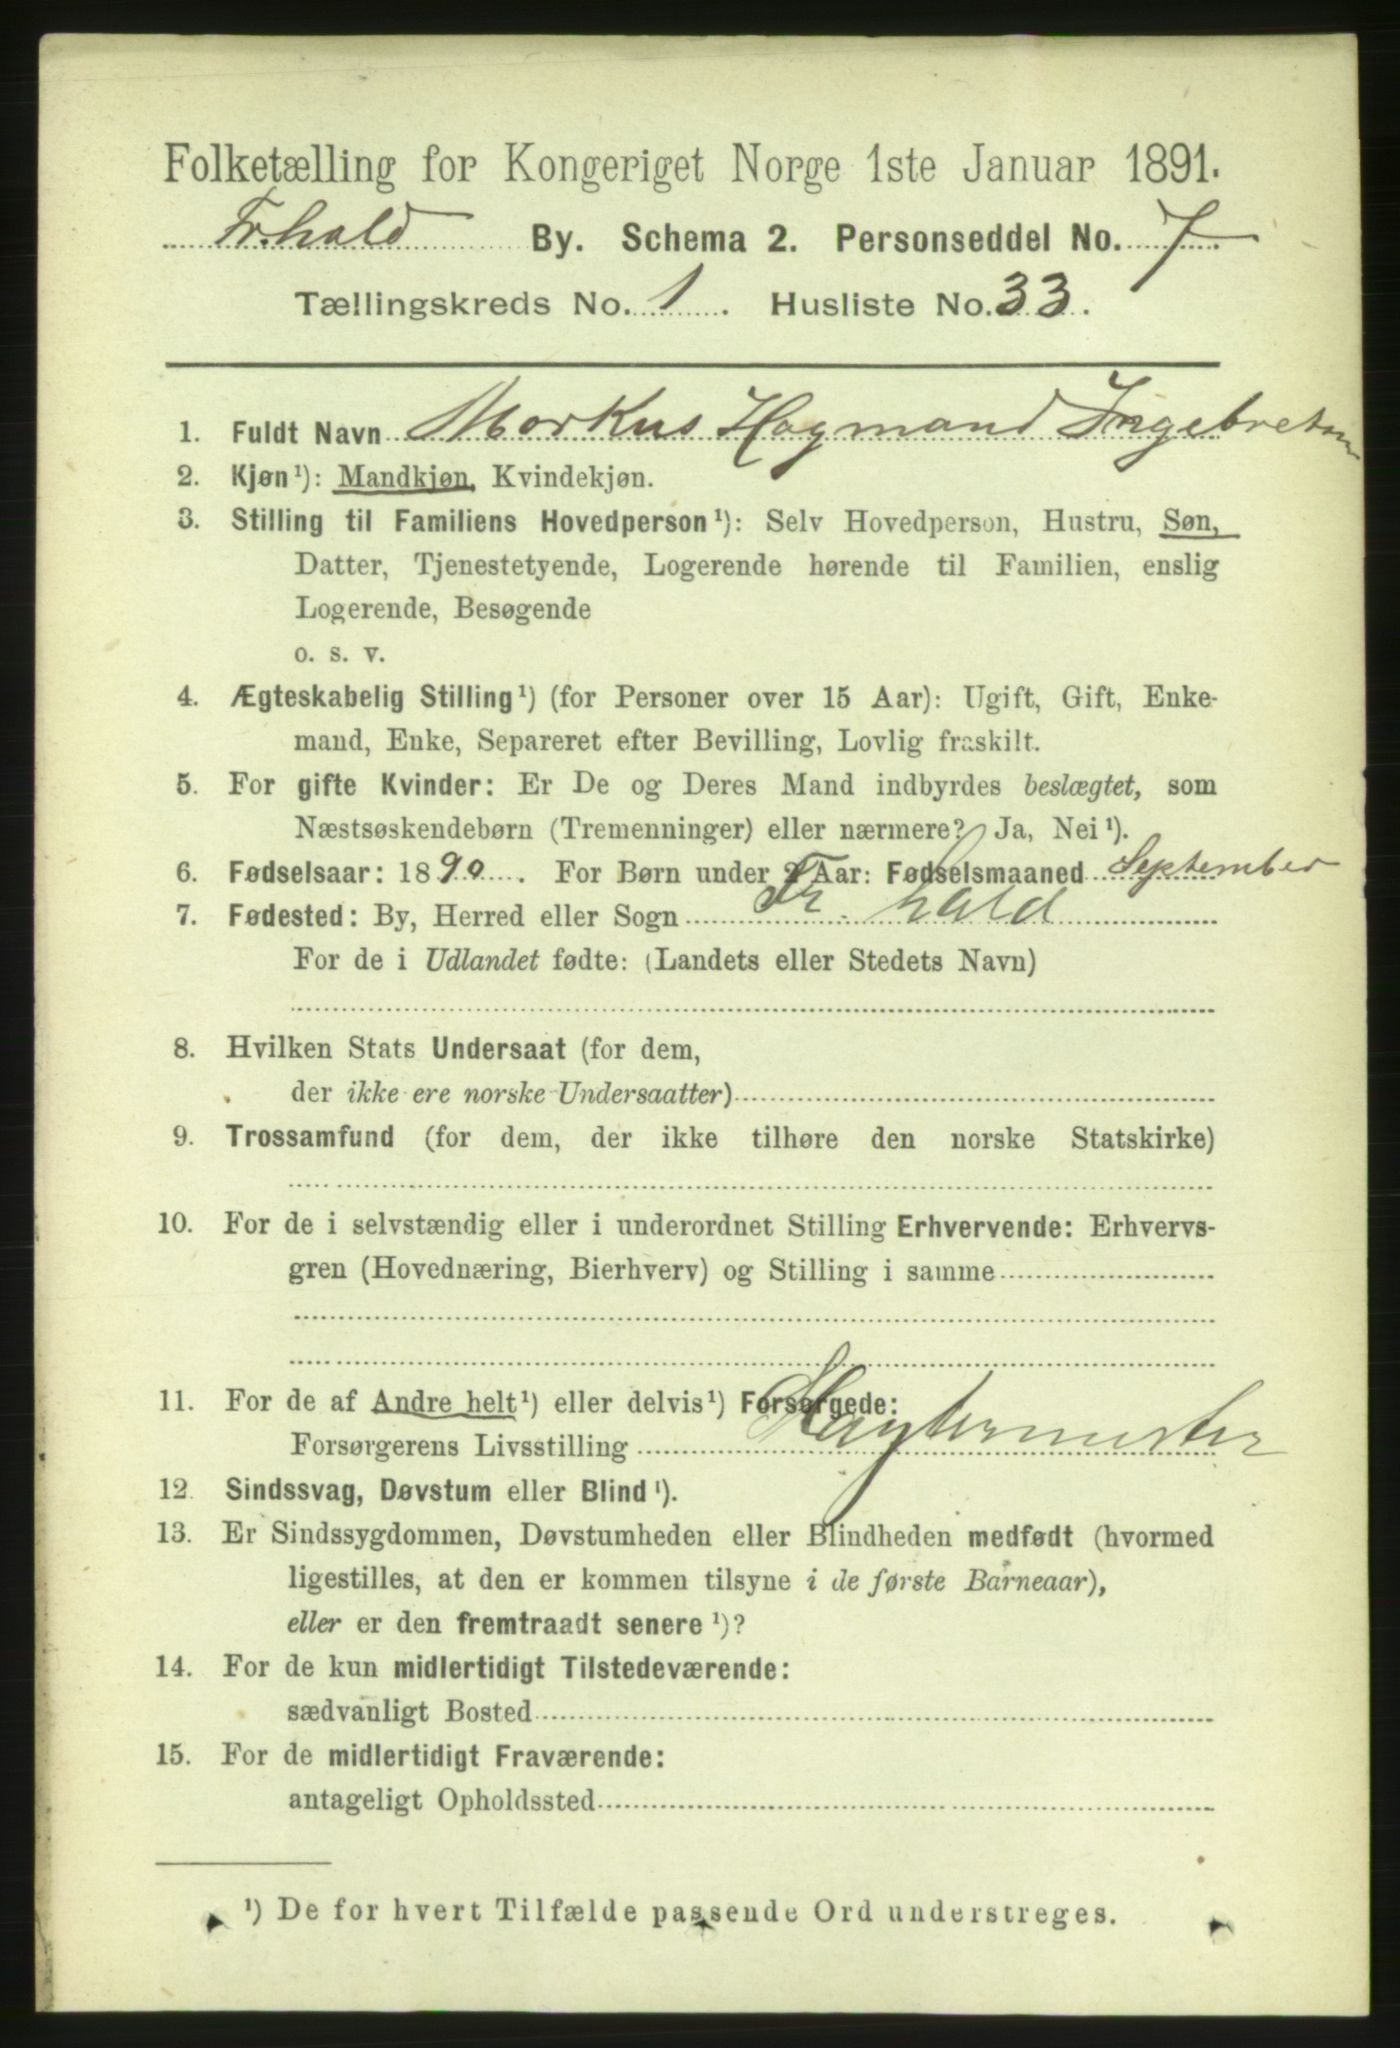 Folketælling for Kongeriget Norge 1ste Januar 1891.
Fr.hald By. Schema 2. Personseddel No. 7
Tællingskreds No. 1. Husliste No. 33.
1. Fuldt Navn Markus Hagmand Ingebretsen
2. Kjøn¹): Mandkjøn, Kvindekjøn.
3. Stilling til Familiens Hovedperson¹): Selv Hovedperson, Hustru, Søn,
Datter, Tjenestetyende, Logerende hørende til Familien, enslig
Logerende, Besøgende
o. s. v.
4. Ægteskabelig Stilling¹) (for Personer over 15 Aar): Ugift, Gift, Enke-
mand, Enke, Separeret efter Bevilling, Lovlig fraskilt.
5. For gifte Kvinder: Er De og Deres Mand indbyrdes beslægtet, som
Næstsøskendebørn (Tremenninger) eller nærmere? Ja, Nei¹).
6. Fødselsaar: 1890. For Børn under 2 Aar: Fødselsmaaned September
7. Fødested: By, Herred eller Sogn Fr. hald
For de i Udlandet fødte: (Landets eller Stedets Navn)
8. Hvilken Stats Undersaat (for dem,
der ikke ere norske Undersaatter)
9. Trossamfund (for dem, der ikke tilhøre den norske Statskirke)
10. For de i selvstændig eller i underordnet Stilling Erhvervende: Erhvervs-
gren (Hovednæring, Bierhverv) og Stilling i samme
11. For de af Andre helt¹) eller delvis¹) Forsørgede:
Forsørgerens Livsstilling
12. Sindssvag, Døvstum eller Blind¹).
13. Er Sindssygdommen, Døvstumheden eller Blindheden medfødt (hvormed
ligestilles, at den er kommen tilsyne i de første Barneaar),
eller er den fremtraadt senere¹)?
14. For de kun midlertidigt Tilstedeværende:
sædvanligt Bosted
15. For de midlertidigt Fraværende:
antageligt Opholdssted
¹) De for hvert Tilfælde passende Ord understreges.